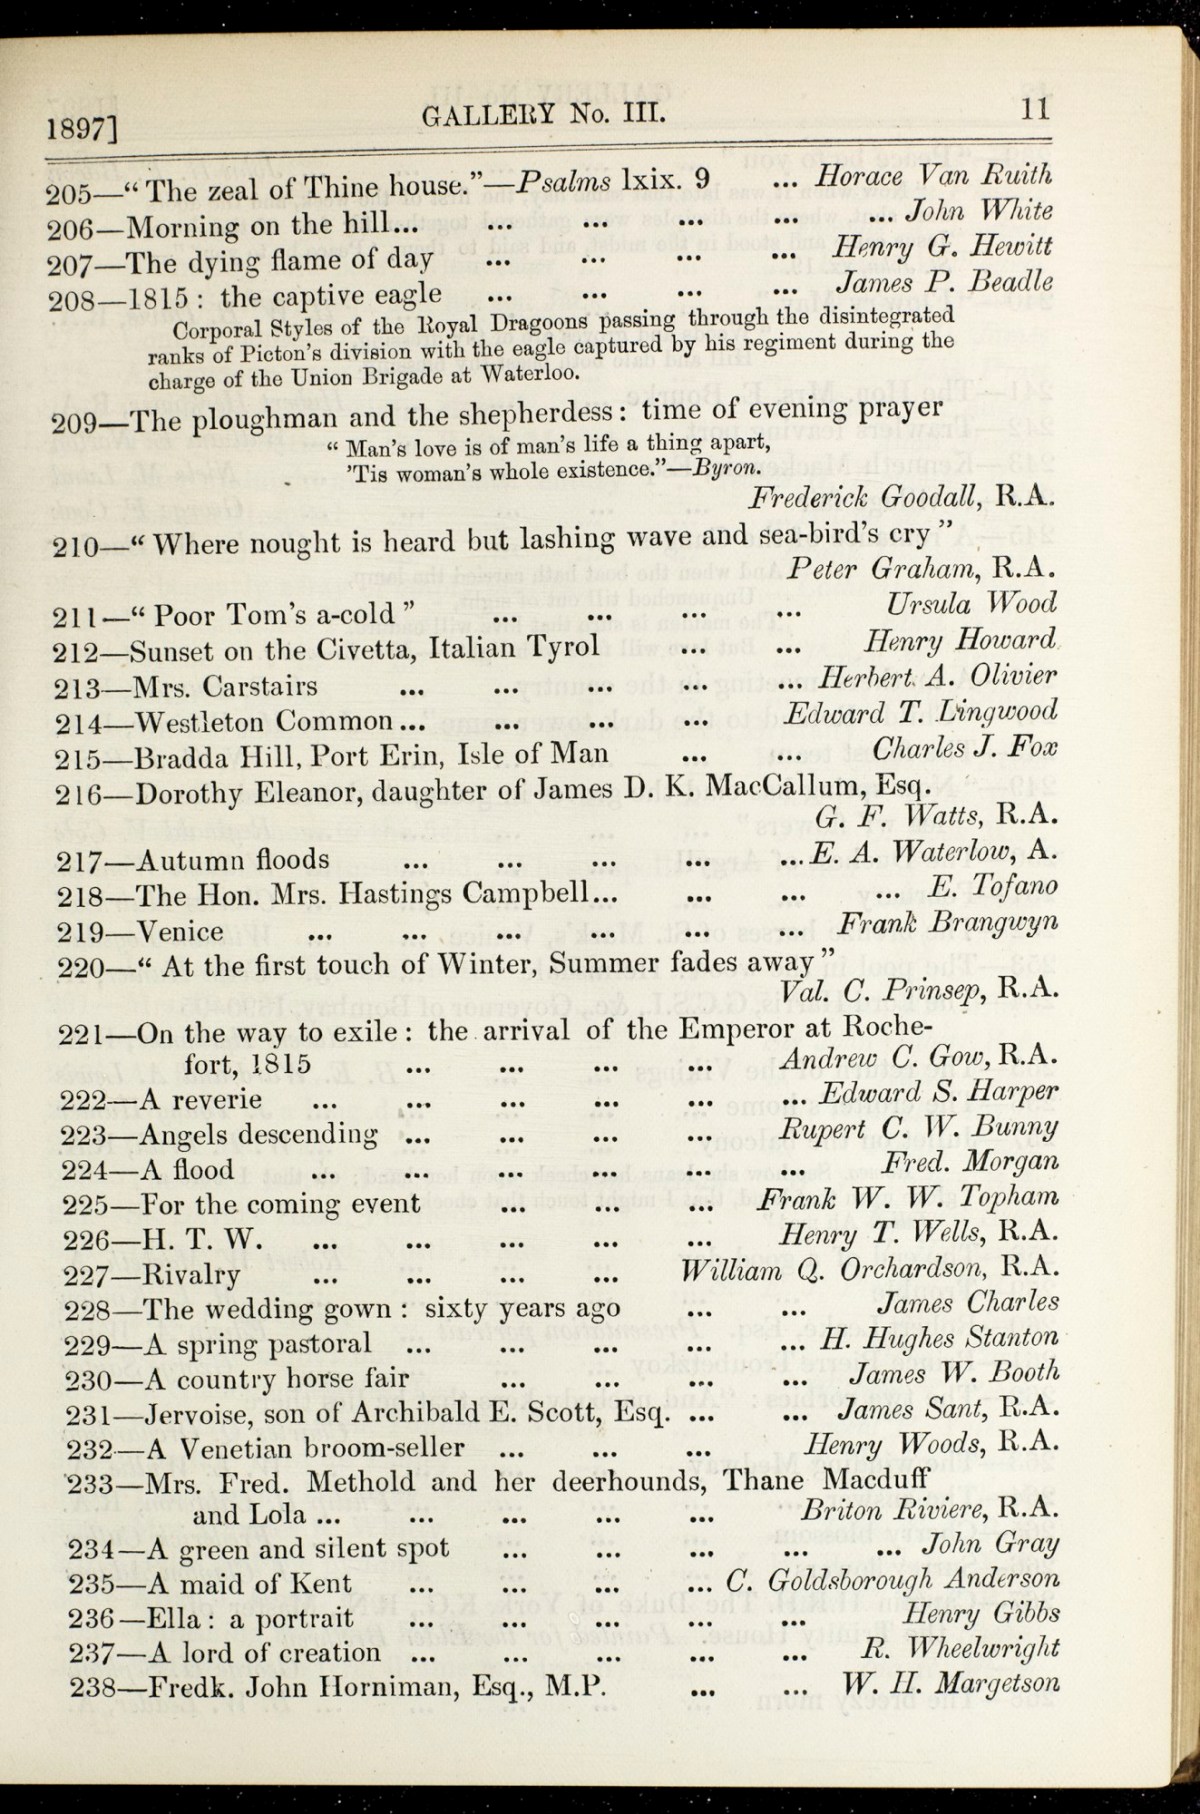 1897] GALLERY No. III. 11
205—“The zeal of Thine house.”—Psalms lxix. 9 ... Horace Van Ruith
206—Morning on the hill... ... ... ... ... ... John White
207—The dying flame of day ... ... ... ... Henry G. Hewitt
208—1815 : the captive eagle ... ... ... ... James P. Beadle
Corporal Styles of the Royal Dragoons passing through the disintegrated
ranks of Picton’s division with the eagle captured by his regiment during the
charge of the Union Brigade at Waterloo.
209—The ploughman and the shepherdess : time of evening prayer
“ Man’s love is of man’s life a thing apart,
’Tis woman’s whole existence.”—Byron.
Frederick Goodall, R.A.
210—“ Where nought is heard but lashing wave and sea-bird’s cry ”
Peter Graham, R.A.
211—“ Poor Tom’s a-cold ” ... ... ... ... Ursula Wood
212—Sunset on the Civetta, Italian Tyrol ... ... Henry Howard
213—Mrs. Carstairs ... ... ... ... ... Herbert A. Olivier
214—Westleton Common... ... ... ... Edward T. Lingwood
215—Bradda Hill, Port Erin, Isle of Man ... ... Charles J. Fox
216—Dorothy Eleanor, daughter of James D. K. MacCallum, Esq.
G. F. Watts, R.A.
217—Autumn floods ... ... ... ... ... E. A. Waterlow, A.
218—The Hon. Mrs. Hastings Campbell... ... ... ... E. Tofano
219—Venice ... ... ... ... ... ... Frank Brangwyn
220—“ At the first touch of Winter, Summer fades away ”
Val. C. Prinsep, R.A.
221—On the way to exile : the arrival of the Emperor at Roche-
fort, 1815 ... ... ... ... Andrew C. Gow, R.A.
222—A reverie ... ... ... ... ... ... Edward S. Harper
223—Angels descending ... ... ... ... Rupert C. W. Bunny
224—A flood ... ... ... ... ... ... Fred. Morgan
225—For the coming event ... ... ... Frank W. W. Topham
226—H. T. W. ... ... ... ... ... Henry T. Wells, R.A.
227—Rivalry ... ... ... ... William Q. Orchardson, R.A.
228—The wedding gown : sixty years ago ... ... James Charles
229—A spring pastoral ... ... ... ... ... H. Hughes Stanton
230—A country horse fair ... ... ... ... James W. Booth
231—Jervoise, son of Archibald E. Scott, Esq. ... ... James Sant, R.A.
232—A Venetian broom-seller ... ... ... Henry Woods, R.A.
233—Mrs. Fred. Methold and her deerhounds, Thane Macduff
and Lola ... ... ... ... ... Briton Riviere, R.A.
234—A green and silent spot ... ... ... ... ... John Gray
235—A maid of Kent ... ... ... ... C. Goldsborough Anderson
236—Ella : a portrait ... ... ... ... ... Henry Gibbs
237—A lord of creation ... ... ... ... ... R. Wheelwright
238—Fredk. John Horniman, Esq., M.P. ... ... W. H. Margetson